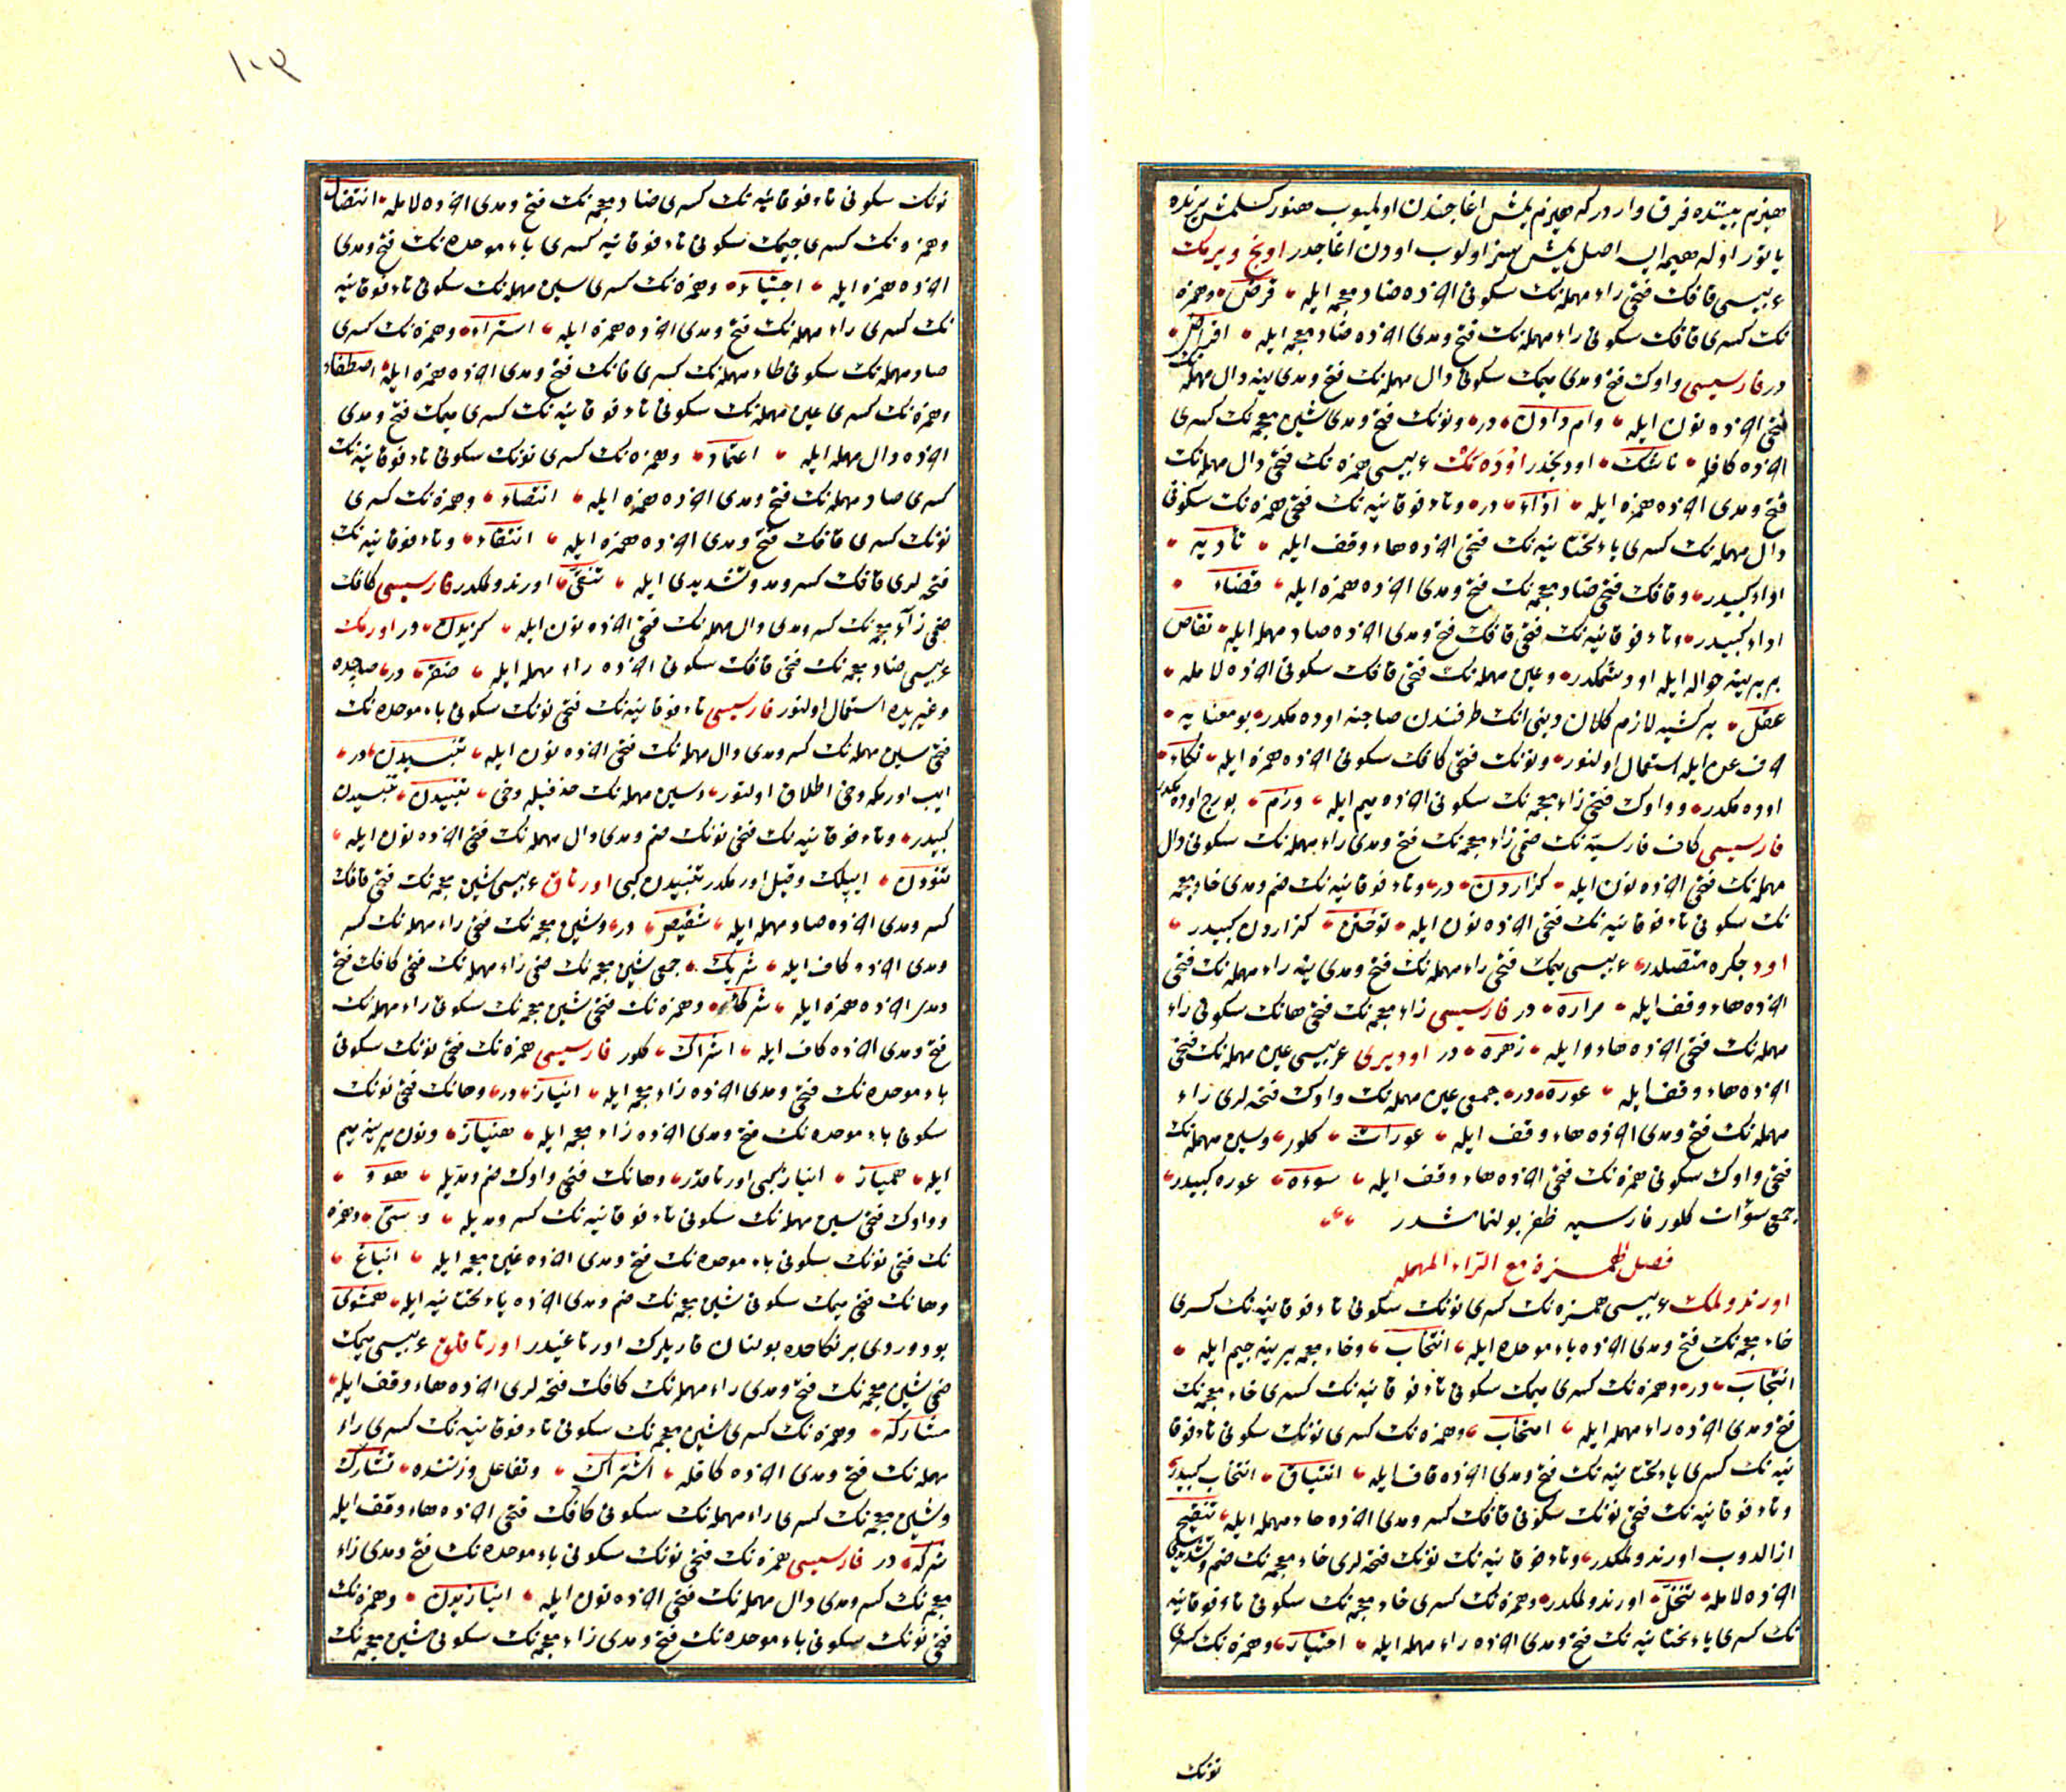 هیزم بیتده فرق وار در که هیزم یمش اغاجندن اولمیوب هنوز کسلمش یرنده
یاتور اوله هیمه ایسه اصل یمش سز اولوب اودن اغاجدر اونج ویرمك
عربیسی قافك فتحی راء مهمله نك سکونی اخرده ضاد معجمه ایله قرض وهمزه
نك کسری قافك سکونی راء مهمله نك فتح ومدی اخرده ضاد معجمه ایله اقراض
در فارسیسی واوك فتح ومدی میمك سکونی دال مهمله نك فتح ومدی ینه دال مهمله نك
فتحی اخرده نون ایله وام دادن در ونونك فتح ومدی شین معجمه نك کسری
اخرده کافله ناشك اودنجدر اوده مك عربیسی همزه نك فتحی دال مهمله نك
فتح ومدی اخرده همزه ایله اداء در وتاء فوقانیه نك فتحی همزه نك سکونی
دال مهمله نك کسری یاء تحتانیه نك فتحی اخرده هاء وقف ایله تأدیه
اداء کبیدر وقافك فتحی ضاد معجمه نك فتح ومدی اخرده همزه ایله قضاء
اداء کبیدر وتاء فوقانیه نك فتحی قافك فتح ومدی اخرده صاد مهمله ایله تقاص
بربرینه حواله ایله اودشمکدر وعین مهمله نك فتحی قافك سکونی اخرده لامله
عقل بر کشیه لازم کلان دینی انك طرفندن صاحبنه اوده مکدر بو معنایه
حرف عن ایله استعمال اولنور ونونك فتحی کافك سکونی اخرده همزه ایله نکاء
اوده مکدر وواوك فتحی زاء معجمه نك سکونی اخرده میم ایله وزم بورج اوده مکدر
فارسیسی کاف فارسیه نك ضمی زاء معجمه نك فتح ومدی راء مهمله نك سکونی دال
مهمله نك فتحی اخرده نون ایله گزاردن در وتاء فوقانیه نك ضم ومدی خاء معجمه
نك سکونی تاء فوقانیه نك فتحی اخرده نون ایله توختن گزاردن کبیدر
اود جکره متصلدر عربیسی میمك فتحی راء مهمله نك فتح ومدی ینه راء مهمله نك فتحی
اخرده هاء وقف ایله مراره در فارسیسی زاء معجمه نك فتحی هانك سکونی راء
مهمله نك فتحی اخرده هاء ایله زهره در اودیری عربیسی عین مهمله نك فتحی
اخرده هاء وقف ایله عوره در جمعی عین مهمله نك واوك فتحه لری راء
مهمله نك فتح ومدی اخرده هاء وقف ایله عورات کلور وسین مهمله نك
فتحی واوك سکونی همزه نك فتحی اخرده هاء وقف ایله سوءه عوره کبیدر
جمعی سوآت کلور فارسیسنه ظفر بولنمامشدر
فصل الهمزة مع الراء المهملة
اورندولمك عربیسی همزه نك کسری نونك سکونی تاء فوقانیه نك کسری
خاء معجمه نك فتح ومدی اخرده باء موحده ایله انتخاب وخاء معجمه یرینه جیم ایله
انتجاب در وهمزه نك کسری میمك سکونی تاء فوقانیه نك کسری خاء معجمه نك
فتح ومدی اخرده راء مهمله ایله امتخار وهمزه نك کسری نونك سکونی تاء فوقا
نیه نك کسری یاء تحتانیه نك فتح ومدی اخرده قاف ایله انتیاق انتخاب کبیدر
وتاء فوقانیه نك فتحی نونك سکونی قافك کسر ومدی اخرده حاء مهمله ایله تنقیح
اورندولمکدر وتاء فوقانیه نك نونك فتحه لری خاء معجمه نك ضم وتشدیدی
اخرده لامله تنخل اورندولمکدر وهمزه نك کسری خاء معجمه نك سکونی تاء فوقانیه
نك کسری یاء تحتانیه نك فتح ومدی اخرده راء مهمله ایله اختیار وهمزه نك کسری
نونك
١٠٣
نونك سکونی تاء فوقانیه نك کسری ضاد معجمه نك فتح ومدی اخرده لامله انتضال
وهمزه نك کسری جیمك سکونی تاء فوقانیه کسری باء موحده نك فتح ومدی
اخرده همزه ایله اجتباء وهمزه نك کسری سین مهمله نك سکونی تاء فوقانیه
نك کسری راء مهمله نك فتح ومدی اخرده همزه ایله استراء وهمزه نك کسری
صاد مهمله نك سکونی طاء مهمله نك کسری فانك فتح ومدی اخرده همزه ایله اصطفاء
وهمزه نك کسری عین مهمله نك سکونی تاء فوقانیه نك کسری میمك فتح ومدی
اخرده دال مهمله ایله اعتماد وهمزه نك کسری نونك سکونی تاء فوقانیه نك
کسری صاد مهمله نك فتح ومدی اخرده همزه ایله انتصاء وهمزه نك کسری
نونك کسری قافك فتح ومدی اخرده همزه ایله انتقاء وتاء فوقانیه نك
فتحه لری قافك کسر ومد وتشدیدی ایله تنقی اورندولمکدر فارسیسی کافك
ضمی زاء معجمه نك کسر ومدی دال مهمله نك فتحی اخرده نون ایله گزیدن در اورمك
عربیسی ضاد معجمه نك فتحی قافك سکونی اخرده راء مهمله ایله ضقر در صاچده
وغیریده استعمال اولنور فارسیسی تاء فوقانیه نك فتحی نونك سکونی باء موحده نك
فتحی سین مهمله نك کسر ومدی دال مهمله نك فتحی اخرده نون ایله تنبسیدن در
ایپ اورمکه دخی اطلاق اولنور وسین مهمله نك حذفیله دخی تنبیدن تنبسیدن
کبیدر وتاء فوقانیه نك فتحی نونك ضم ومدی دال مهمله نك فتحی اخرده نون ایله
تنودن ایپلك وقیل اورمکدر تنبیدن کبی اورتاق عربیسی شین معجمه نك فتحی قافك
کسر ومدی اخرده صاد مهمله ایله شقیص در وشین معجمه نك فتحی راء مهمله نك کسر
ومدی اخرده کاف ایله شریك جمعی شین معجمه نك ضمی راء مهمله نك فتحی کافك فتح
ومدی اخرده همزه ایله شرکاء وهمزه نك فتحی شین معجمه نك سکونی راء مهمله نك
فتح ومدی اخرده کاف ایله اشراك کلور فارسیسی همزه نك فتحی نونك سکونی
باء موحده نك فتحی ومدی اخرده زاء معجمه ایله انباز در وهانك فتحی نونك
سکونی باء موحده نك فتح ومدی اخرده زاء معجمه ایله هنباز ونون یرینه میم
ایله همباز انباز کبی اورتاقدر وهانك فتحی واوك ضم ومدیله هوو
وواوك فتحی سین مهمله نك سکونی تاء فوقانیه نك کسر ومدیله وستی وهمزه
نك فتحی نونك سکونی باء موحده نك فتح ومدی اخرده غین معجمه ایله انباغ
وهانك فتحی میمك سکونی شین معجمه نك ضم ومدی اخرده یاء تحتانیه ایله همشوی
بو دوردی بر نکاحده بولنان قاریلرك اورتاغیدر اورتاقلق عربیسی میمك
ضمی شین معجمه نك فتح ومدی راء مهمله نك کافك فتحه لری اخرده هاء وقف ایله
مشارکه وهمزه نك کسری شین معجمه نك سکونی تاء فوقانیه نك کسری راء
مهمله نك فتح ومدی اخرده کافله اشتراك وتفاعل وزننده تشارك
وشین معجمه نك کسری راء مهمله نك سکونی کافك فتحی اخرده هاء وقف ایله
شرکه در فارسیسی همزه نك فتحی نونك سکونی باء موحده نك فتح ومدی زاء
معجمه نك کسر ومدی دال مهمله نك فتحی اخرده نون ایله انبازیدن وهمزه نك
فتحی نونك سکونی باء موحده نك فتح ومدی زاء معجمه نك سکونی شین معجمه نك